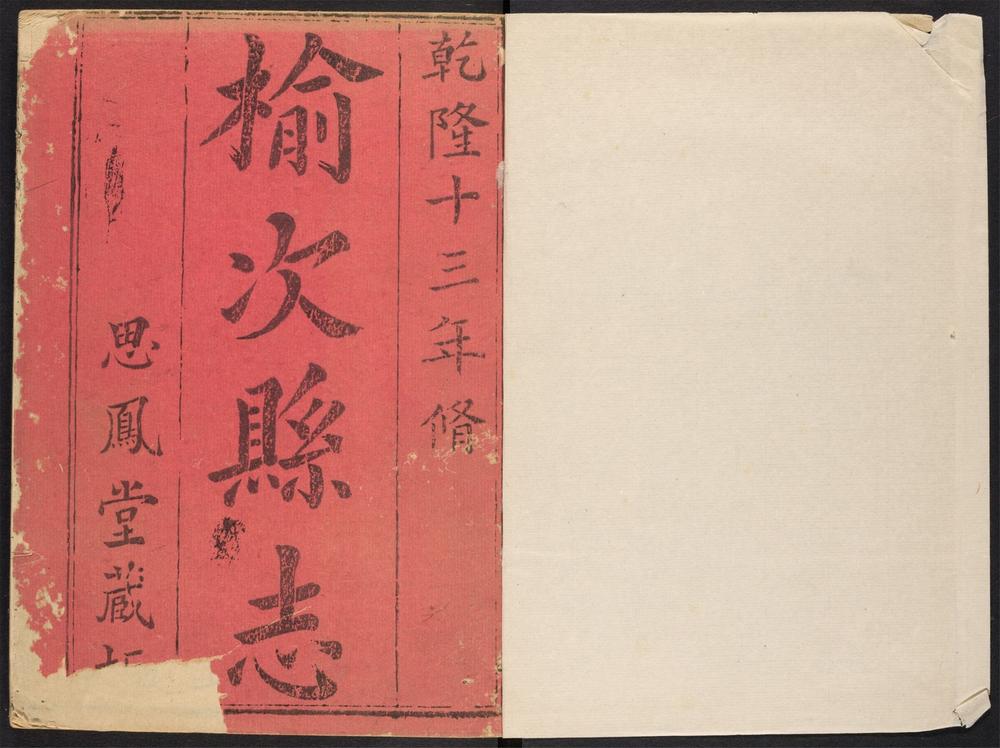 乾隆十三年脩
榆次縣志
思鳳堂藏